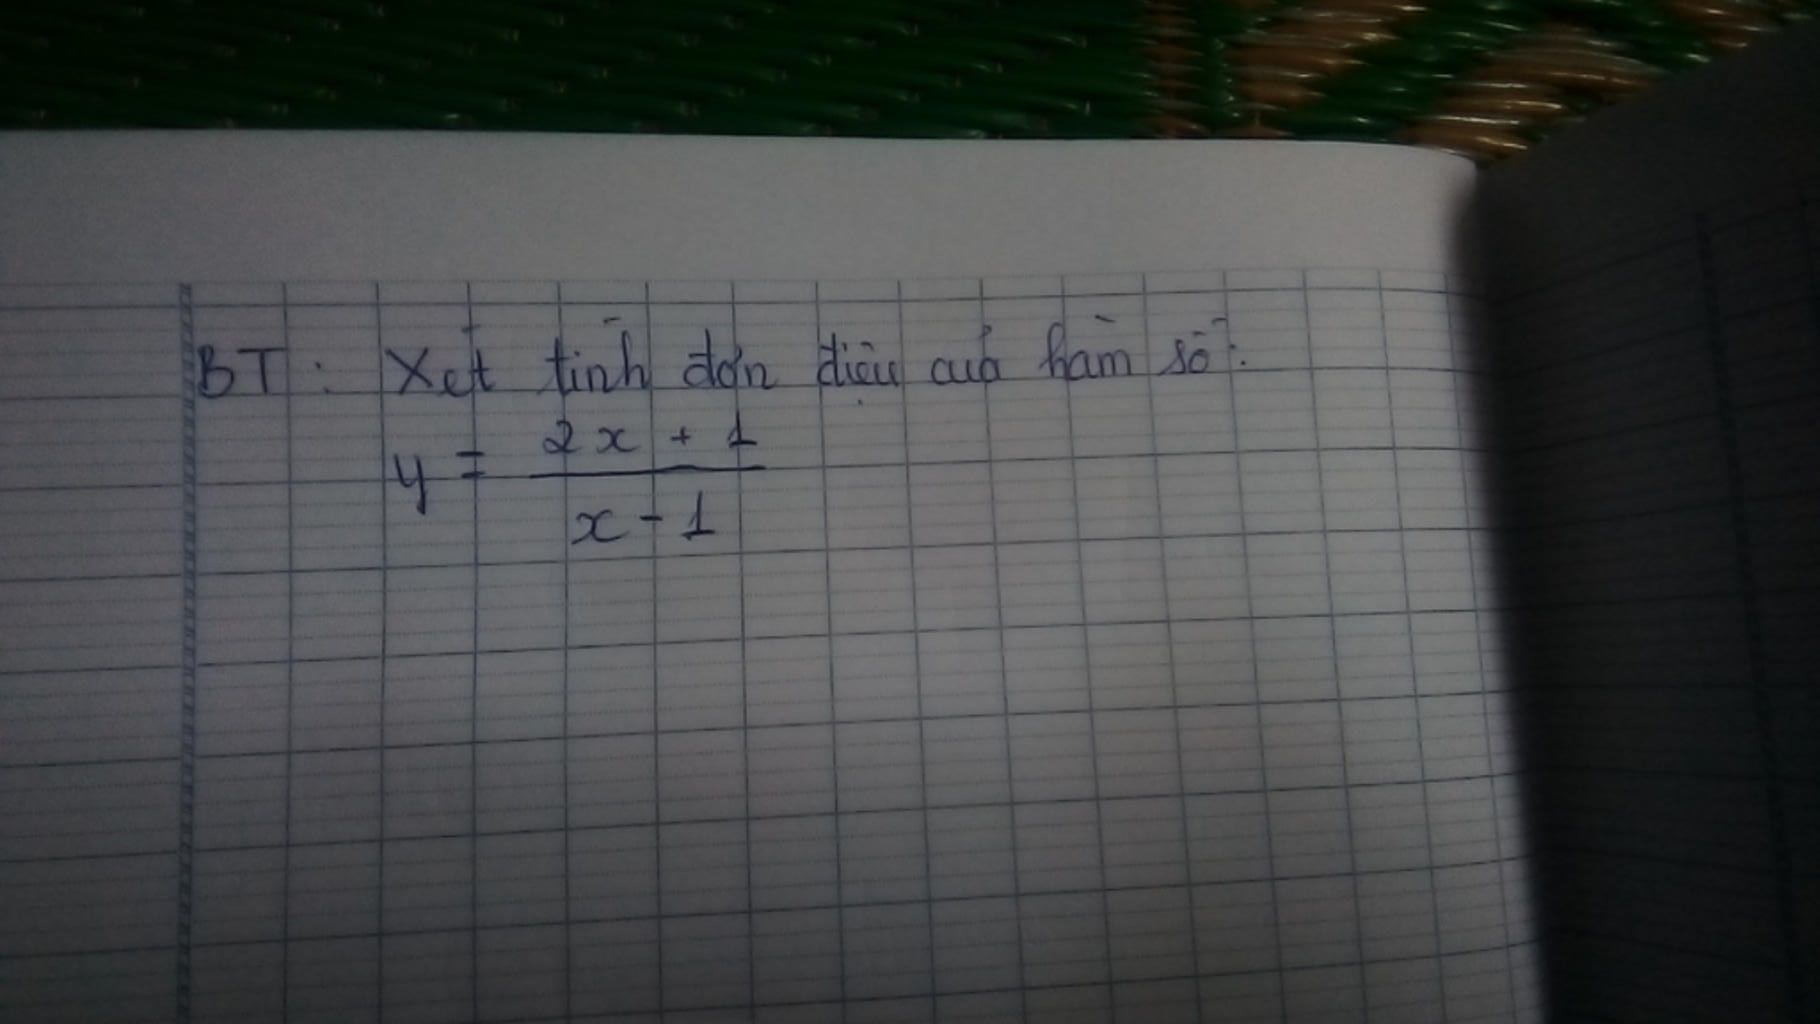 BT: Xét tính đơn điệu của hàm số:
y = \frac{2x + 1}{x - 1}